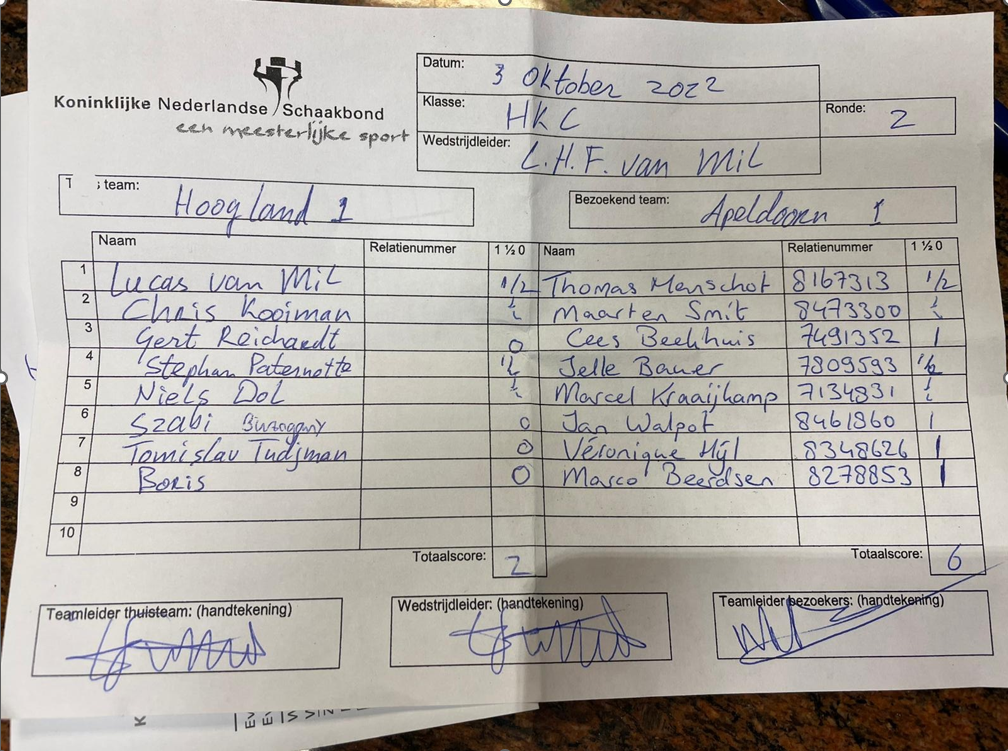 Koninklijke Nederlandse Schaakbond
een meesterlijke sport
Datum: 3 Oktober 2022
Klasse: HKC
Ronde: 2
Wedstrijdleider: L.H.F. van Mil
T ; team: Hoogland 1
Bezoekend team: Apeldoorn 1
Naam Relatienummer 1 ½ 0 Naam Relatienummer 1 ½ 0
1 Lucas van Mil 1/2 Thomas Menschot 8167313 1/2
2 Chris Kooiman ½ Maarten Smit 8473300 ½
3 Gert Reichardt 0 Cees Beekhuis 7491352 1
4 Stephan Paternotte ½ Jelle Bauer 7809593 ½
5 Niels Dol ½ Marcel Kraaijkamp 7134831 ½
6 Szabi 0 Jan Walpot 8461860 1
7 Tomislav Tudjman 0 Véronique 8348626 1
8 Boris 0 Marco Beerdsen 8278853 1
9
10
Totaalscore: 2 Totaalscore: 6
Teamleider thuisteam: (handtekening) Wedstrijdleider: (handtekening) Teamleider bezoekers: (handtekening)